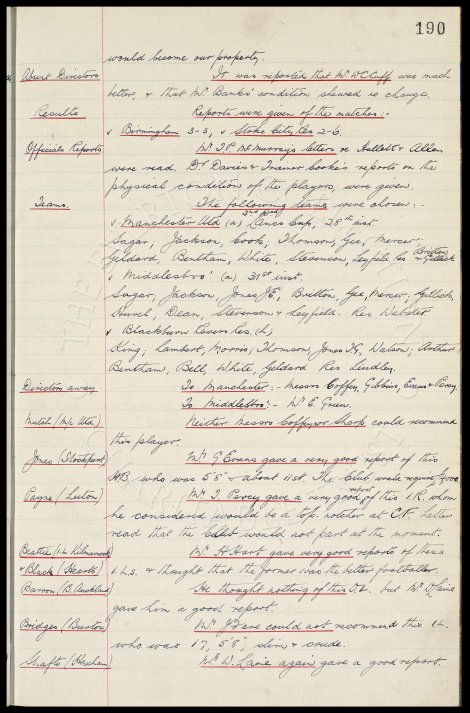 190
would become our property.
Absent Directors It was reported that Mr W Cuff was much
better, & that Mr Banks' condition shewed no change.
Results Reports were given of the matches :-
v Birmingham 3-3, v Stoke City Res 2-6.
Officials Reports Mr T P McMurray's letters re Hallett & Allen
were read. Dr Davies & Trainer Cooke's reports on the
physical condition of the players, were given.
Teams. The following teams were chosen :-
v Manchester Utd (a) Lancs Cup, 28th inst.
Sagar, Jackson, Cook; Thomson, Gee, Mercer;
Geldard, Bentham, White, Stevenson, Leyfield Res Britton & Gillick
v Middlesbro' (a) 31st inst.
Sagar, Jackson, Jones J.E., Britton, Gee, Mercer, Gillick,
Hurel, Dean, Stevenson & Leyfield. Res Webster
v Blackburn Rovers Res. (h)
King; Lambert, Morris; Thomson, Jones T.G., Watson; Arthur
Bentham, Bell, White, Geldard Res Lindley.
Directors away. To Manchester :- Messrs Coffey, Gibbins, Evans & Percy.
To Middlesbro' :- Mr E. Green.
Mutch (M/c Utd.) Neither Messrs Coffey nor Sharp could recommend
this player.
Jones (Stockport) Mr G Evans gave a very good report of this
H.B. who was 5'8" & about 11st. The Club wd require
Payne (Luton) Mr T. Percy gave a very good report of this I.R. whom
he considered would be a top notcher at C.F. Letter
read that the Club would not part at the moment.
Beattie (I.L. Kilmarnock) Mr H Hart gave very good reports of these
& Black (Hearts) I.L.s. & thought that the former was the better footballer.
Barron (B. Auckland) He thought nothing of this O.L. but Mr
gave him a good report.
Bridges (Burton) Mr J Fare could not recommend this I.L.
who was 17, 5'8", slim & crude.
Shafto (Hexham) Mr W. again gave a good report.